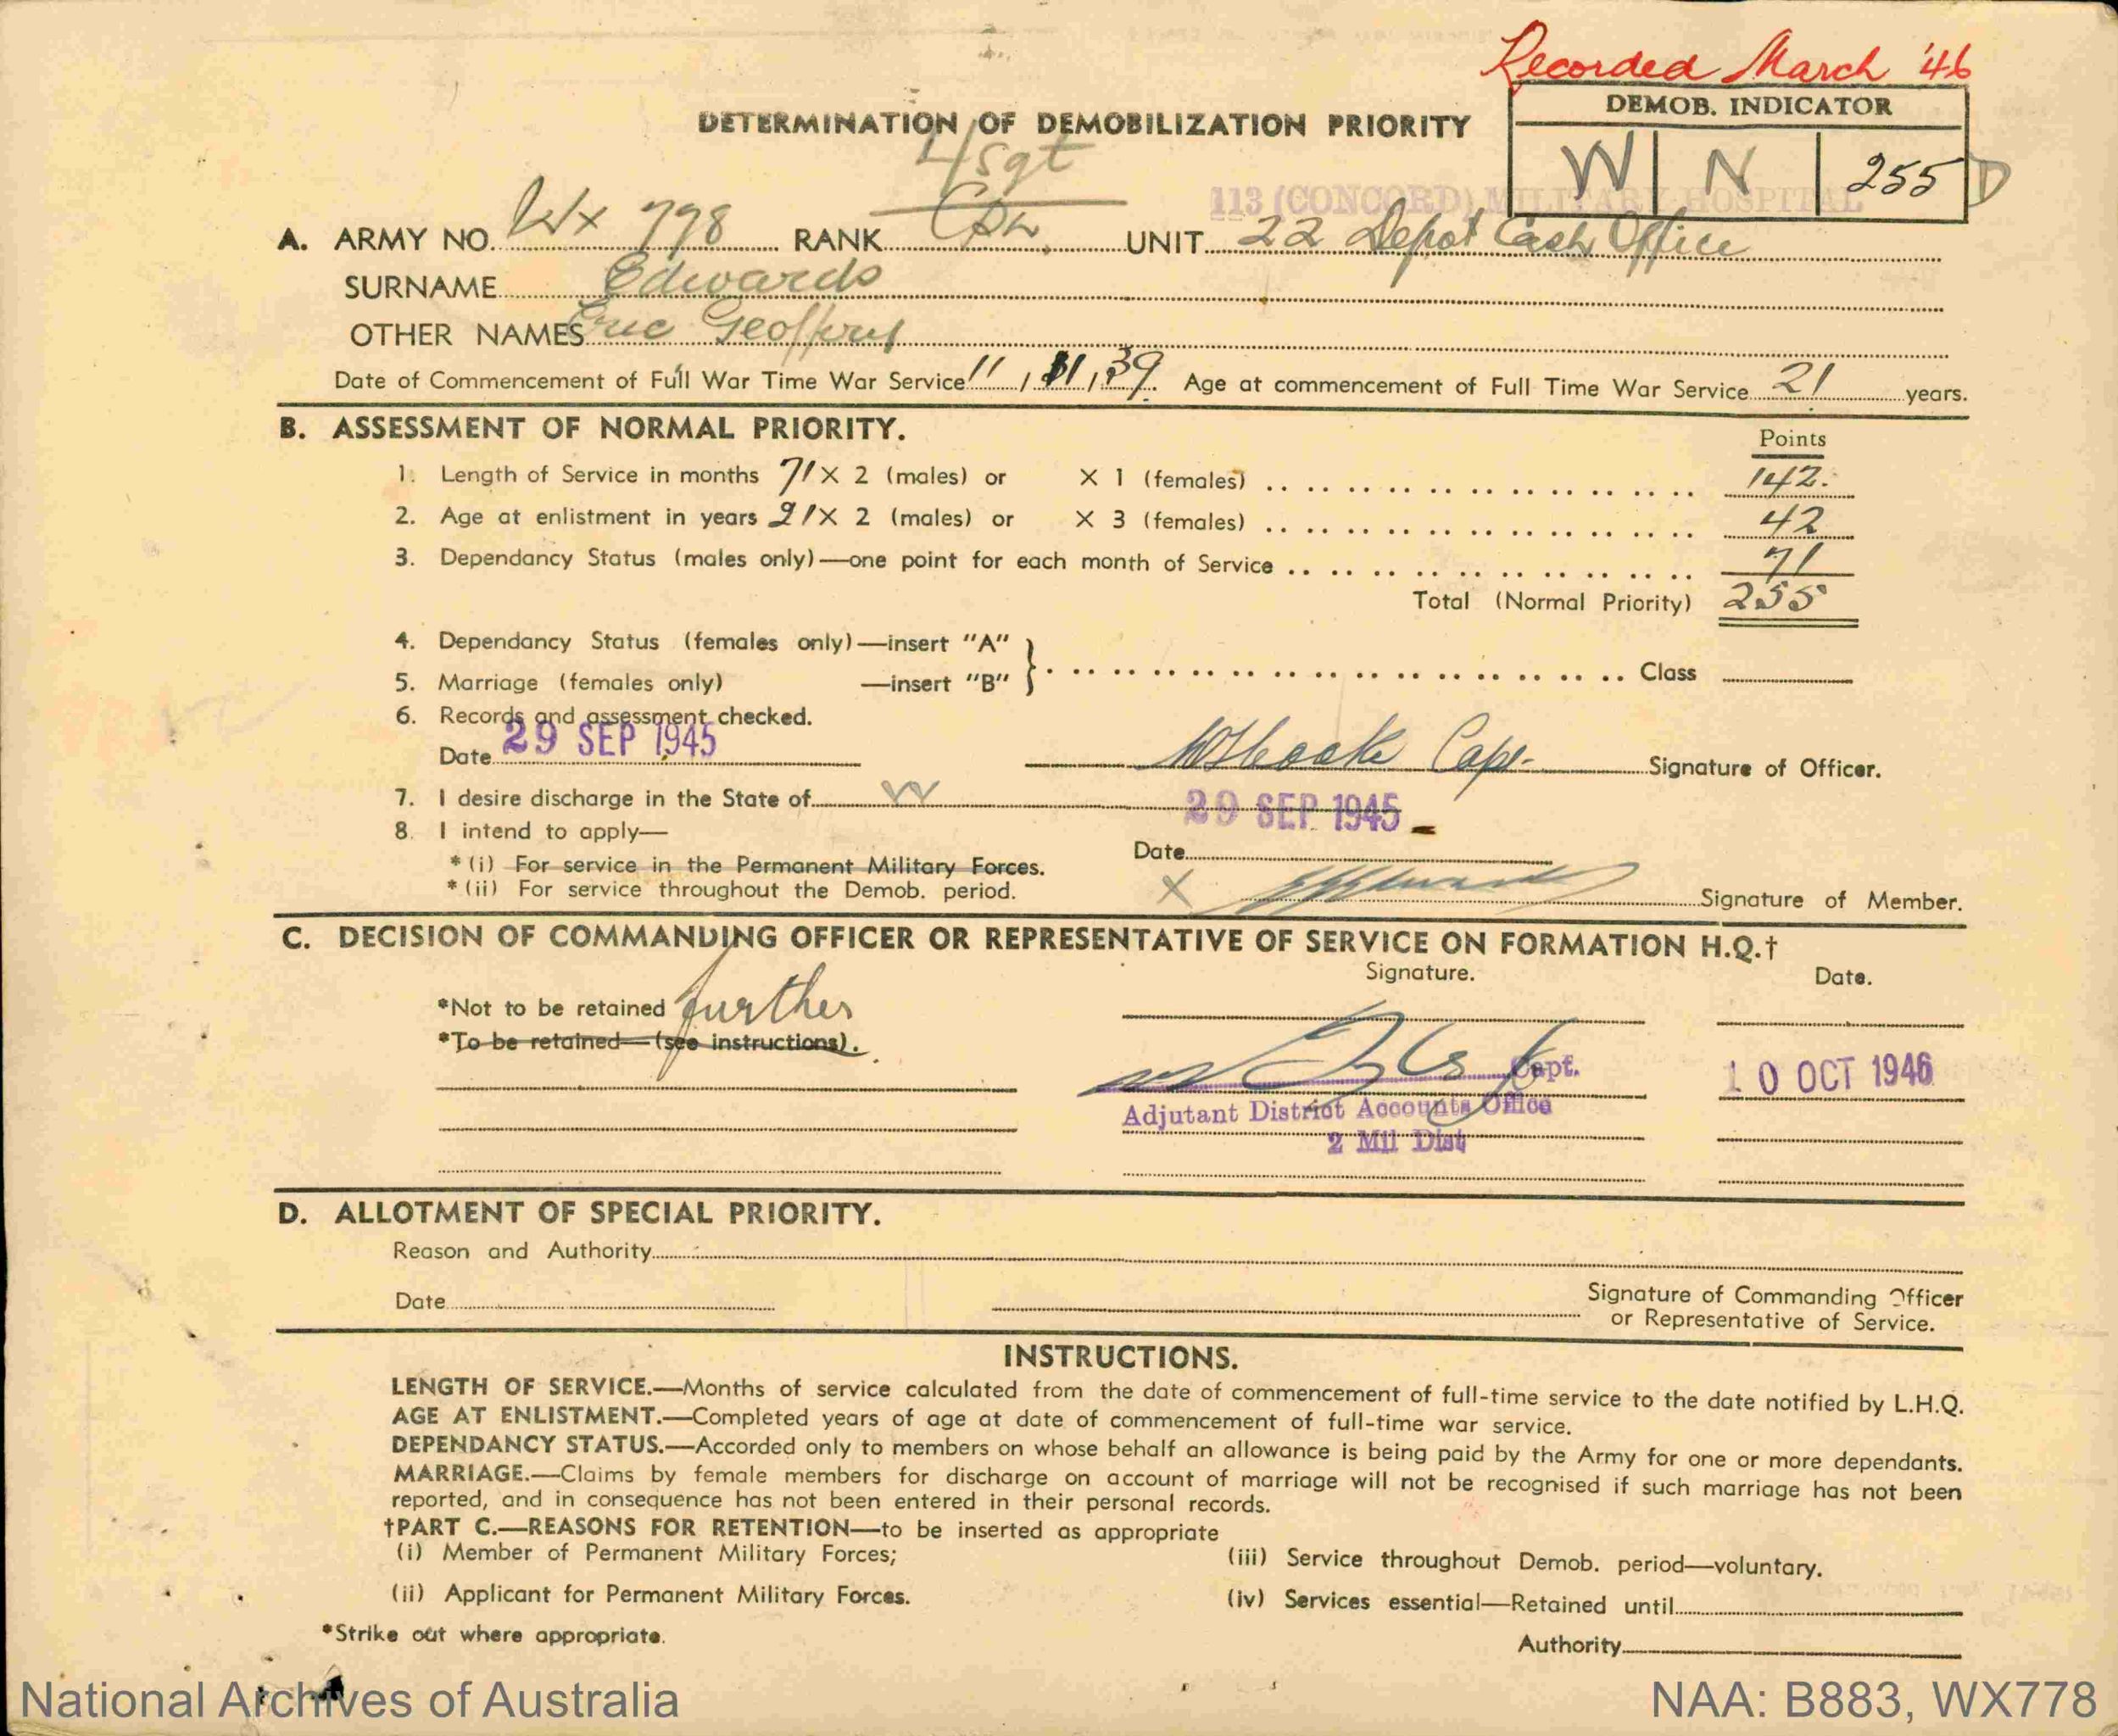 Recorded March '46
DEMOB. INDICATOR
W N 255 D
DETERMINATION OF DEMOBILIZATION PRIORITY
L/Sgt
113 (CONCORD) MILITARY HOSPITAL
A. ARMY NO. Wx 798 RANK Cpl. UNIT 22 Depot Cash Office
SURNAME Edwards
OTHER NAMES Eric Geoffrey
Date of Commencement of Full War Time War Service 11, 11, 39. Age at commencement of Full Time War Service 21 years.
B. ASSESSMENT OF NORMAL PRIORITY.
Points
1. Length of Service in months 71 X 2 (males) or X 1 (females) 142.
2. Age at enlistment in years 21 X 2 (males) or X 3 (females) 42
3. Dependancy Status (males only)—one point for each month of Service 71
Total (Normal Priority) 255
4. Dependancy Status (females only)—insert "A"
5. Marriage (females only) —insert "B" Class
6. Records and assessment checked.
Date 29 SEP 1945 Capt. Signature of Officer.
7. I desire discharge in the State of W
29 SEP 1945
8. I intend to apply—
Date
* (i) For service in the Permanent Military Forces.
* (ii) For service throughout the Demob. period.
X Signature of Member.
C. DECISION OF COMMANDING OFFICER OR REPRESENTATIVE OF SERVICE ON FORMATION H.Q.†
Signature. Date.
*Not to be retained further
*To be retained—(see instructions).
Capt. 10 OCT 1946
Adjutant District Accounts Office
2 Mil Dist
D. ALLOTMENT OF SPECIAL PRIORITY.
Reason and Authority
Date
Signature of Commanding Officer
or Representative of Service.
INSTRUCTIONS.
LENGTH OF SERVICE.—Months of service calculated from the date of commencement of full-time service to the date notified by L.H.Q.
AGE AT ENLISTMENT.—Completed years of age at date of commencement of full-time war service.
DEPENDANCY STATUS.—Accorded only to members on whose behalf an allowance is being paid by the Army for one or more dependants.
MARRIAGE.—Claims by female members for discharge on account of marriage will not be recognised if such marriage has not been
reported, and in consequence has not been entered in their personal records.
†PART C.—REASONS FOR RETENTION—to be inserted as appropriate
(i) Member of Permanent Military Forces; (iii) Service throughout Demob. period—voluntary.
(ii) Applicant for Permanent Military Forces. (iv) Services essential—Retained until
*Strike out where appropriate. Authority
National Archives of Australia NAA: B883, WX778